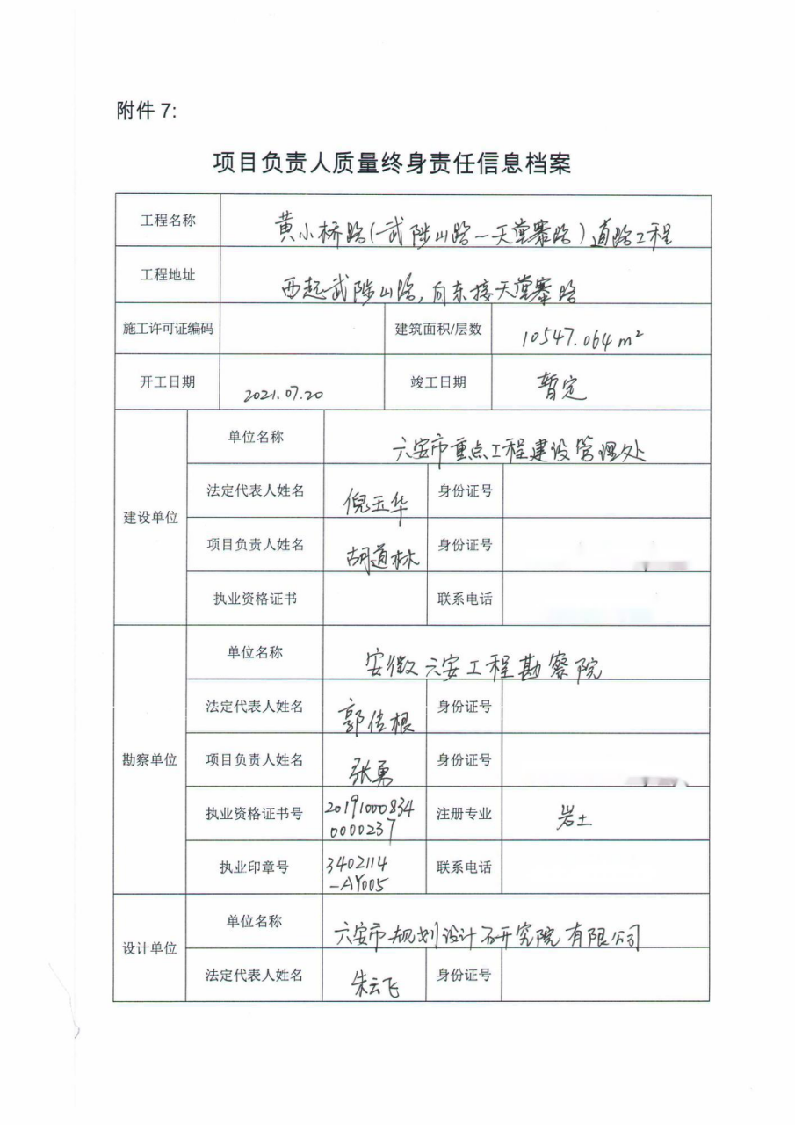 附件 7:
项目负责人质量终身责任信息档案
工程名称 黄小桥路(武陟山路—天堂寨路)道路工程
工程地址 西起武陟山路,向东接天堂寨路
施工许可证编码 建筑面积/层数 10547.064 m²
开工日期 2021.07.20 竣工日期 暂定
建设单位
单位名称 六安市重点工程建设管理处
法定代表人姓名 倪玉华 身份证号
项目负责人姓名 胡道林 身份证号
执业资格证书 联系电话
勘察单位
单位名称 安徽六安工程勘察院
法定代表人姓名 郭传根 身份证号
项目负责人姓名 张勇 身份证号
执业资格证书号 20191000834
0000237 注册专业 岩土
执业印章号 3402114
-AY005 联系电话
设计单位
单位名称 六安市规划设计研究院有限公司
法定代表人姓名 朱云飞 身份证号